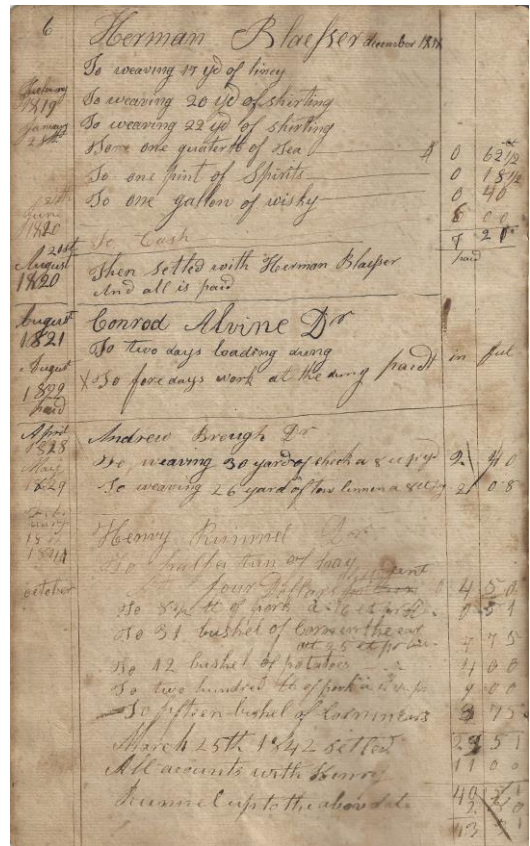 6 Herman Blaesser december 1818
To weaving 17 yd of lincy
1819 To weaving 20 yd of shirting
To weaving 22 yd of shirting
one quarter lb of Tea 0 62½
To one pint of Spirits 0 18½
To one gallon of wisky 0 40
June 8 00
1820 To Cash
21st paid
August Then Settled with Herman Blaesser
1820 And all is paid
August Conrod Alvine Dr
1821 To two days loading dung
August X To fore days work at the dung paidt in ful
1829
paid
April Andrew Brough Dr
1828 To weaving 30 yard of check a 8 ct pr yd 2 40
May
1829 To weaving 26 yard of tow linnen a 8 ct 2 08
Henry Rummel Dr
1841 To half a tun of hay
october four Dollars 4 50
To lb of pork
To 31 bushel of Corn in the ear
at 25 ct 7 75
To 12 bushel of potatoes 4 00
To two hundred lb of pork 9 00
To fifteen bushel of Corn in ears 3 75
March 25th 1842 settled 51
All accounts with Henry 11 00
Rummel up to the above date 40